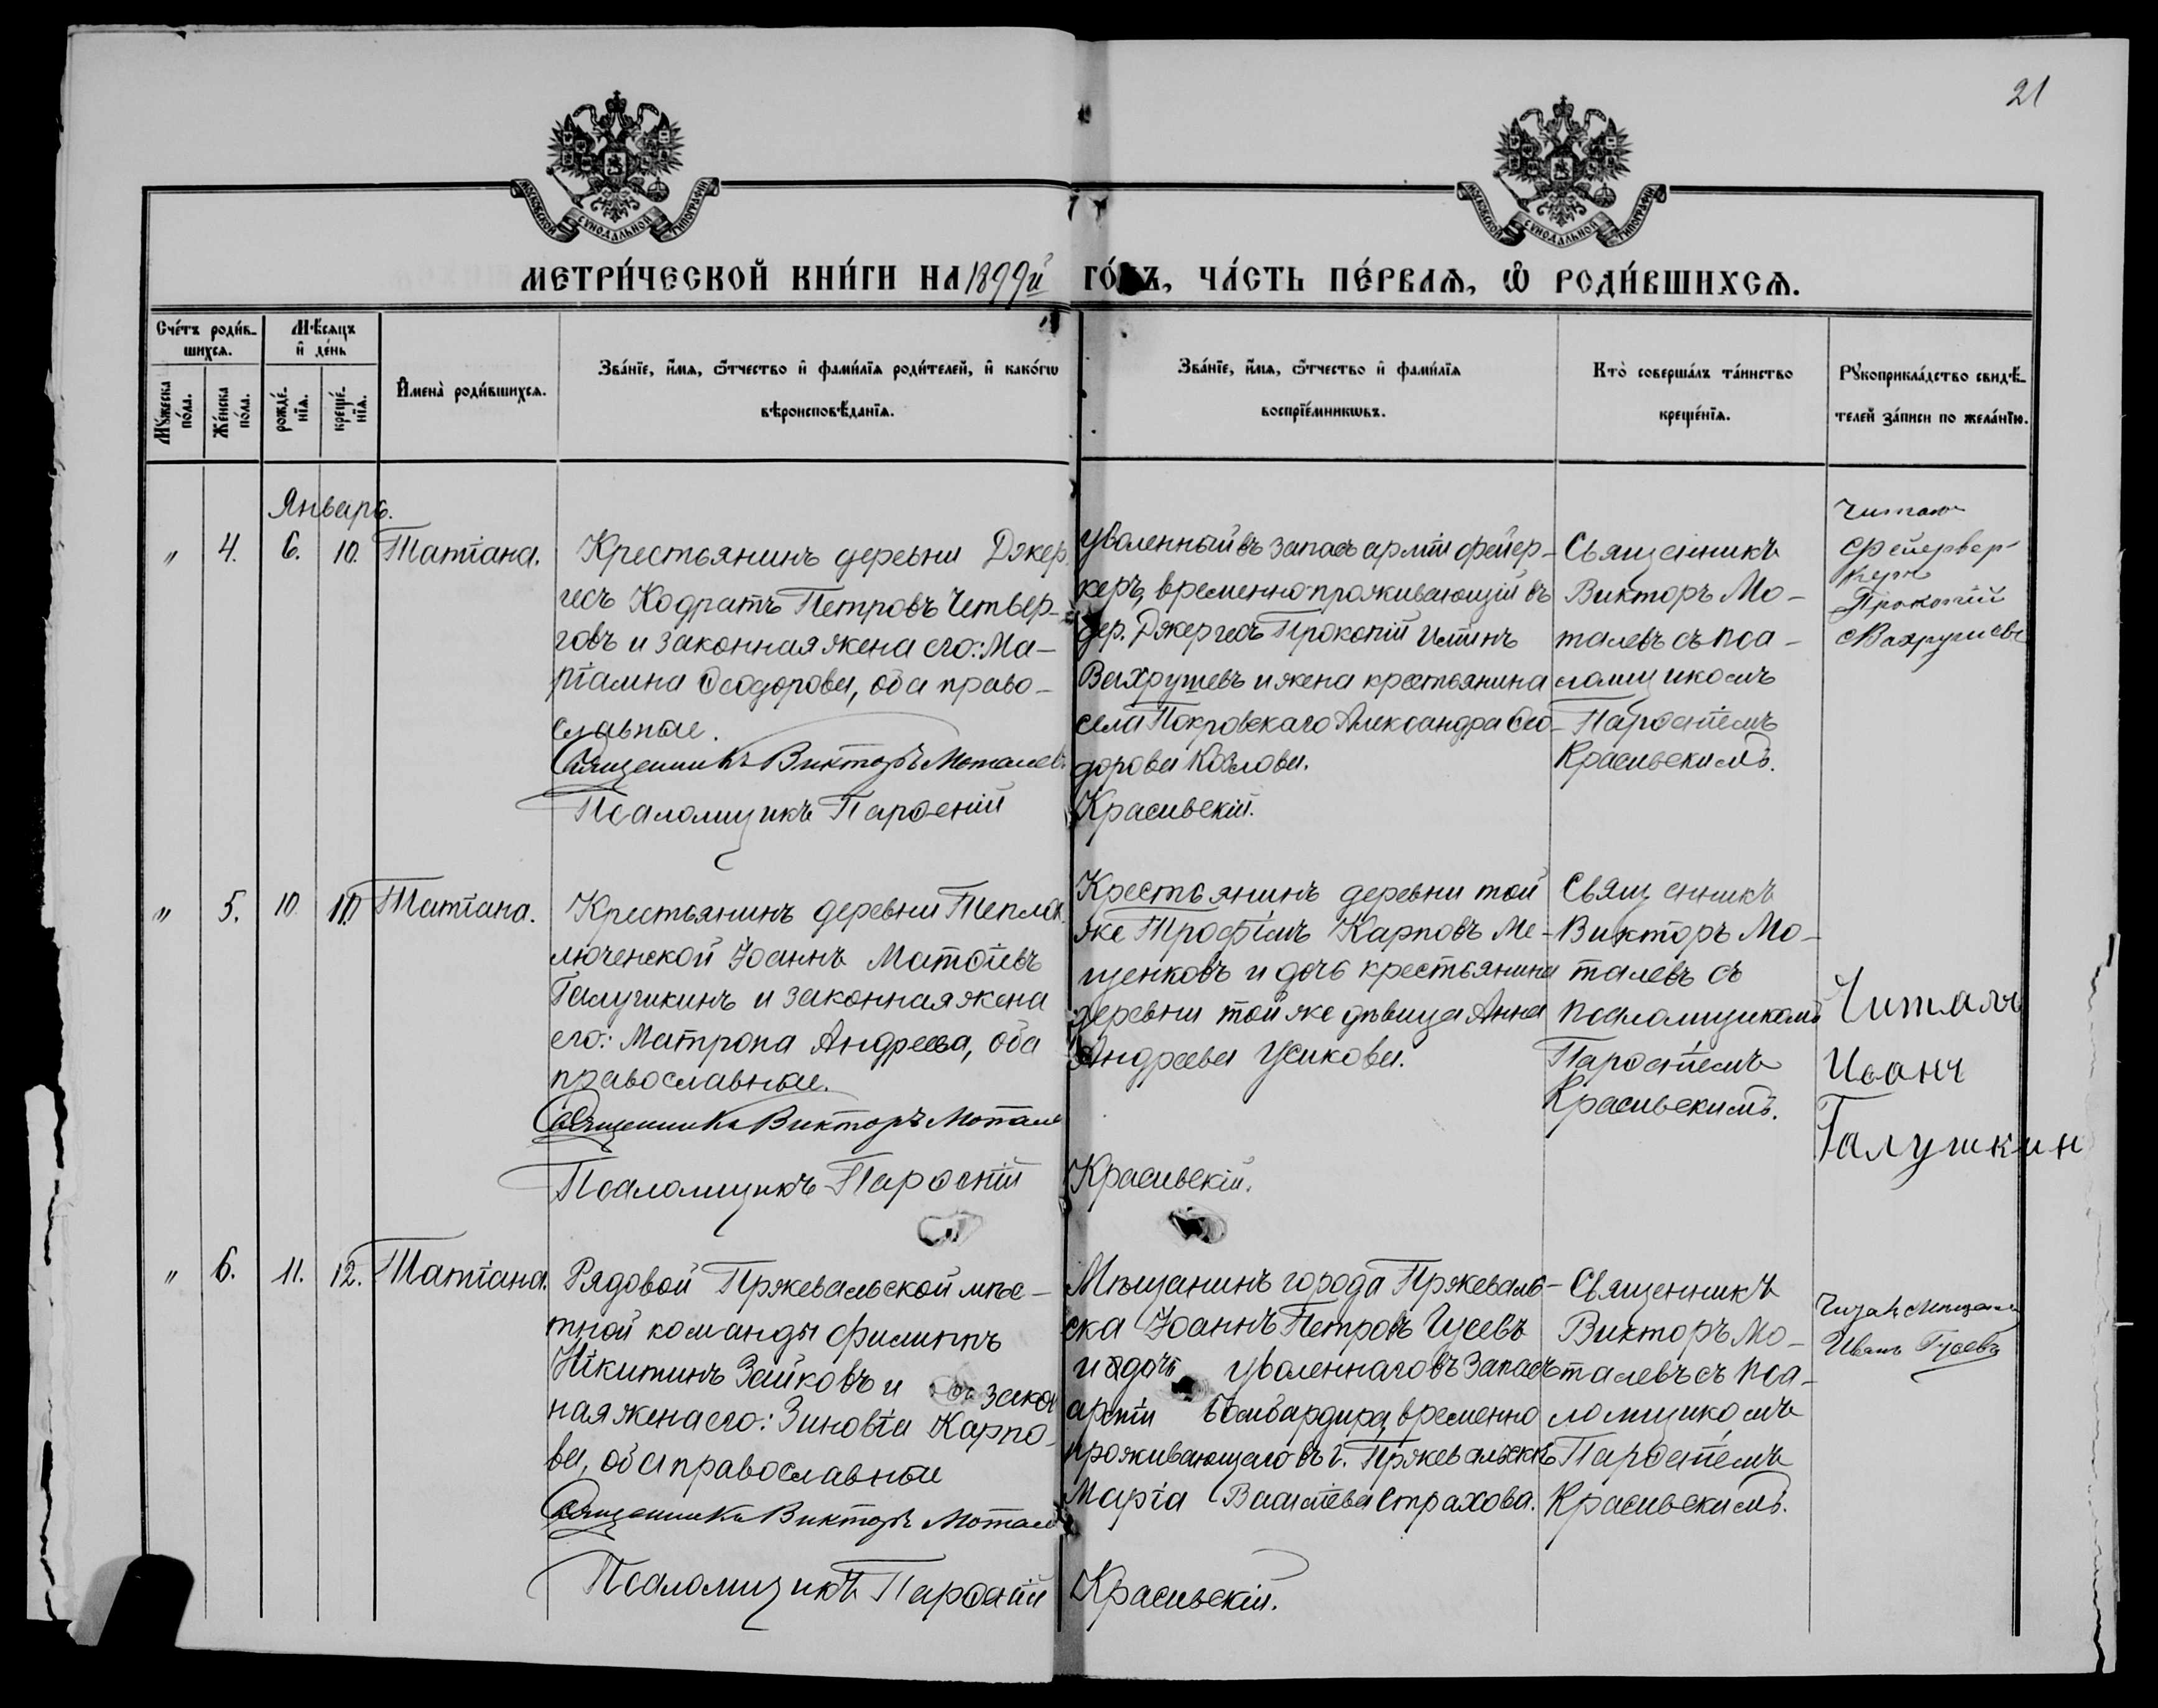 21
МОСКОВСКОЙ СѴНОДАЛЬНОЙ ТИПОГРАФІИ
МОСКОВСКОЙ СѴНОДАЛЬНОЙ ТИПОГРАФІИ
МЕТРИ́ЧЕСКОЙ КНИ́ГИ НА 1899й ГО́ДЪ, ЧА́СТЬ ПЕ́РВАѦ, Ѡ҆ РОДИ́ВШИХСѦ.
Сче́тъ роди́в-
шихсѧ.
Мѣ́сѧцъ
и҆ де́нь
Мꙋ́жеска
по́ла.
Же́нска
по́ла.
рожде́-
нїѧ.
креще́-
нїѧ.
И҆мена̀ роди́вшихсѧ.
Зва́нїе, и҆́мѧ, ѻ҆́тчество и҆ фами́лїѧ роди́телей, и҆ како́гѡ
вѣроисповѣ́данїѧ.
Зва́нїе, и҆́мѧ, ѻ҆́тчество и҆ фами́лїѧ
воспрїе́мникѡвъ.
Кто̀ соверша́лъ та́инство
креще́нїѧ.
Рꙋкоприкла́дство свидѣ́-
телей за́писи по жела́нїю.
Январь.
" 4. 6. 10. Татіана.
Крестьянинъ деревни Джер-
гесъ Кодратъ Петровъ Четвер-
говъ и законная жена его: Ма-
ріамна Ѳеодорова, оба право-
славные.
Священникъ Викторъ Моталевъ
Псаломщикъ Парѳеній
Уволенный въ запасъ арміи фейер-
керъ, временно проживающій въ
дер. Джергесъ Прокопій
Вахрушевъ и жена крестьянина
села Покровскаго Александра Ѳео-
дорова Козлова.
Красивскій.
Священникъ
Викторъ Мо-
талевъ съ пса-
ломщикомъ
Парѳеніемъ
Красивскимъ.
Читалъ
фейервер-
керъ
Прокопій
Вахрушевъ
" 5. 10. 11. Татіана.
Крестьянинъ деревни Теплок-
люченской Іоаннъ Матѳіевъ
Галушкинъ и законная жена
его: Матрона Андреева, оба
православные.
Священникъ Викторъ Моталев
Псаломщикъ Парѳеній
Крестьянинъ деревни той
же Трофимъ Карповъ Ме-
щенковъ и дочь крестьянина
деревни той же дѣвица Анна
Андреева Усикова.
Красивскій.
Священникъ
Викторъ Мо-
талевъ съ
псаломщикомъ
Парѳеніемъ
Красивскимъ.
Читалъ
Иванъ
Галушкин
" 6. 11. 12. Татіана.
Рядовой Пржевальской мѣс-
тной команды Филиппъ
Никитинъ Зайковъ и закон
ная жена его: Зиновіа Карпо-
ва, оба православные
Священникъ Викторъ Моталев
Псаломщикъ Парѳеній
Мѣщанинъ города Пржеваль-
ска Іоаннъ Петровъ Гусевъ
и дочь уволеннаго въ запасъ
арміи бомбардира, временно
проживающаго въ г. Пржевальскѣ
Марія Васильева Страхова.
Красивскій.
Священникъ
Викторъ Мо-
талевъ съ пса-
ломщикомъ
Парѳеніемъ
Красивскимъ.
Иванъ Гусевъ